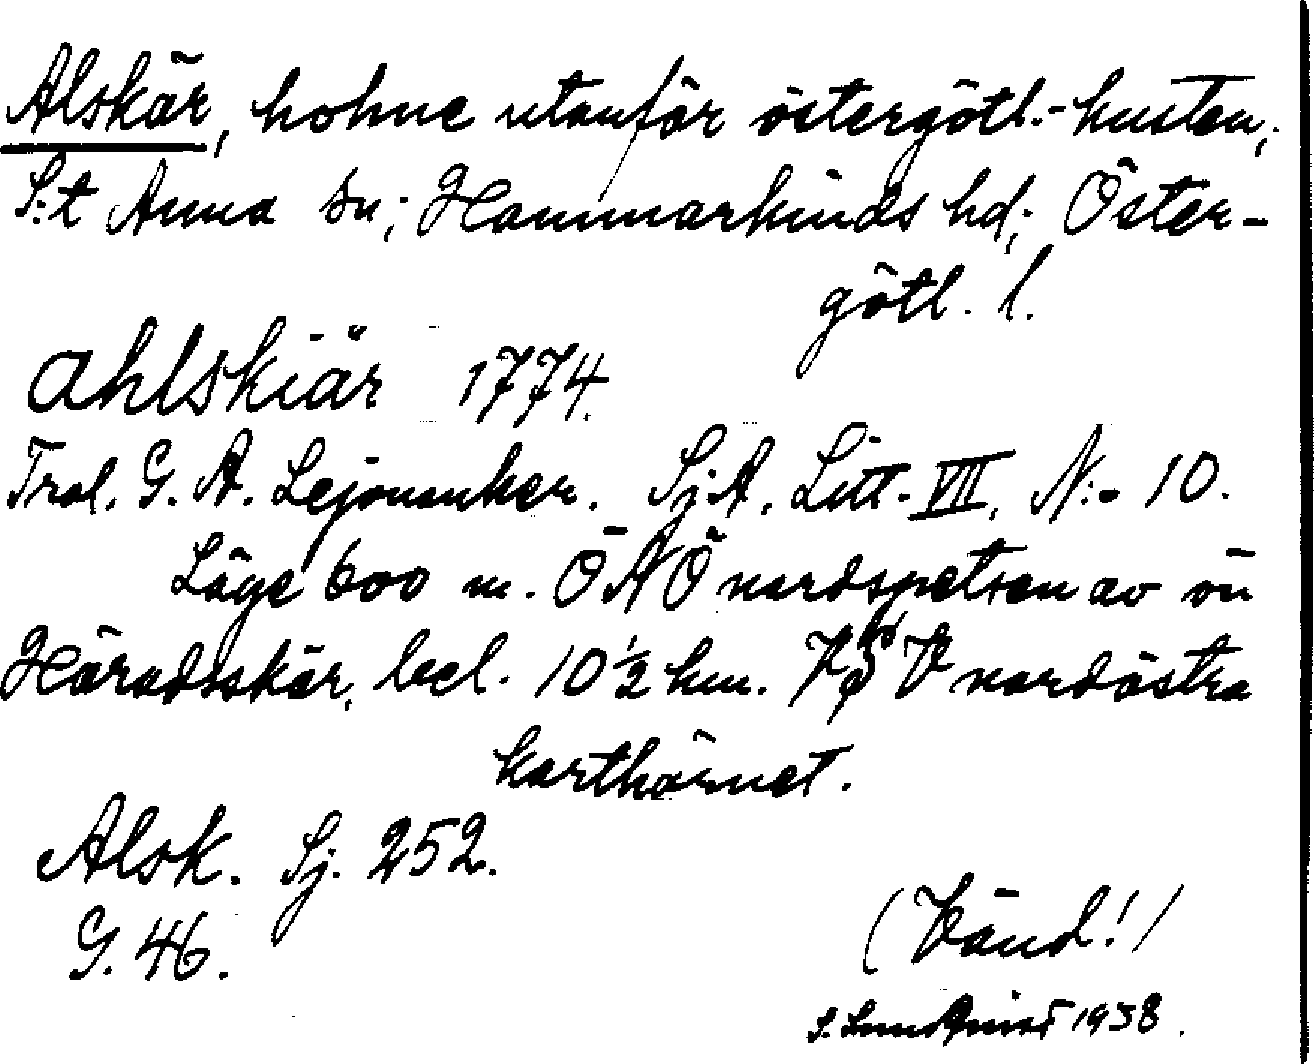 Alskär, holme utanför östergötl.-kusten,
S:t Anna sn; Hammarkinds hd; Öster-
götl. l.
Ahlskiär 1774.
Trol. G. A. Lejonanker. SjA, Litt. VIII, N:o 10.
Läge 600 m. ÖNÖ nordspetsen av ön
Häradsskär, bel. 10 1/2 km. V V nordöstra
karthörnet.
Alsk. Sj. 252.
G. 46.
(Vänd!)
S. 1938.